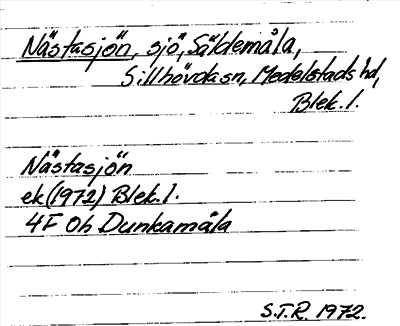 Nästasjön, sjö, Säldemåla,
Sillhövda sn, Medelstads hd,
Blek. l.
Nästasjön
ek (1972) Blek. l.
4F 0h Dunkamåla
S.T.R. 1972.